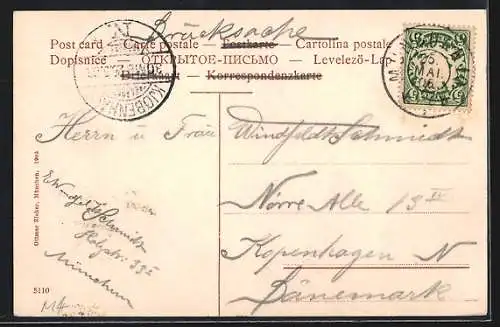 Drucksache
Post card – Carte postale – Postkarte – Cartolina postale
Dopisnice – ОТКРЫТОЕ-ПИСЬМО – Levelező-Lap
Briefkaart – Korrespondenzkarte
KJØBENHAVN
25.
MAI
Herrn u Frau Windfeldt Schmidt
Nörre Alle 13 IV
Kopenhagen N
Dänemark
Schmidt
Holzstr.
München
Ottmar Zieher, München,
5110